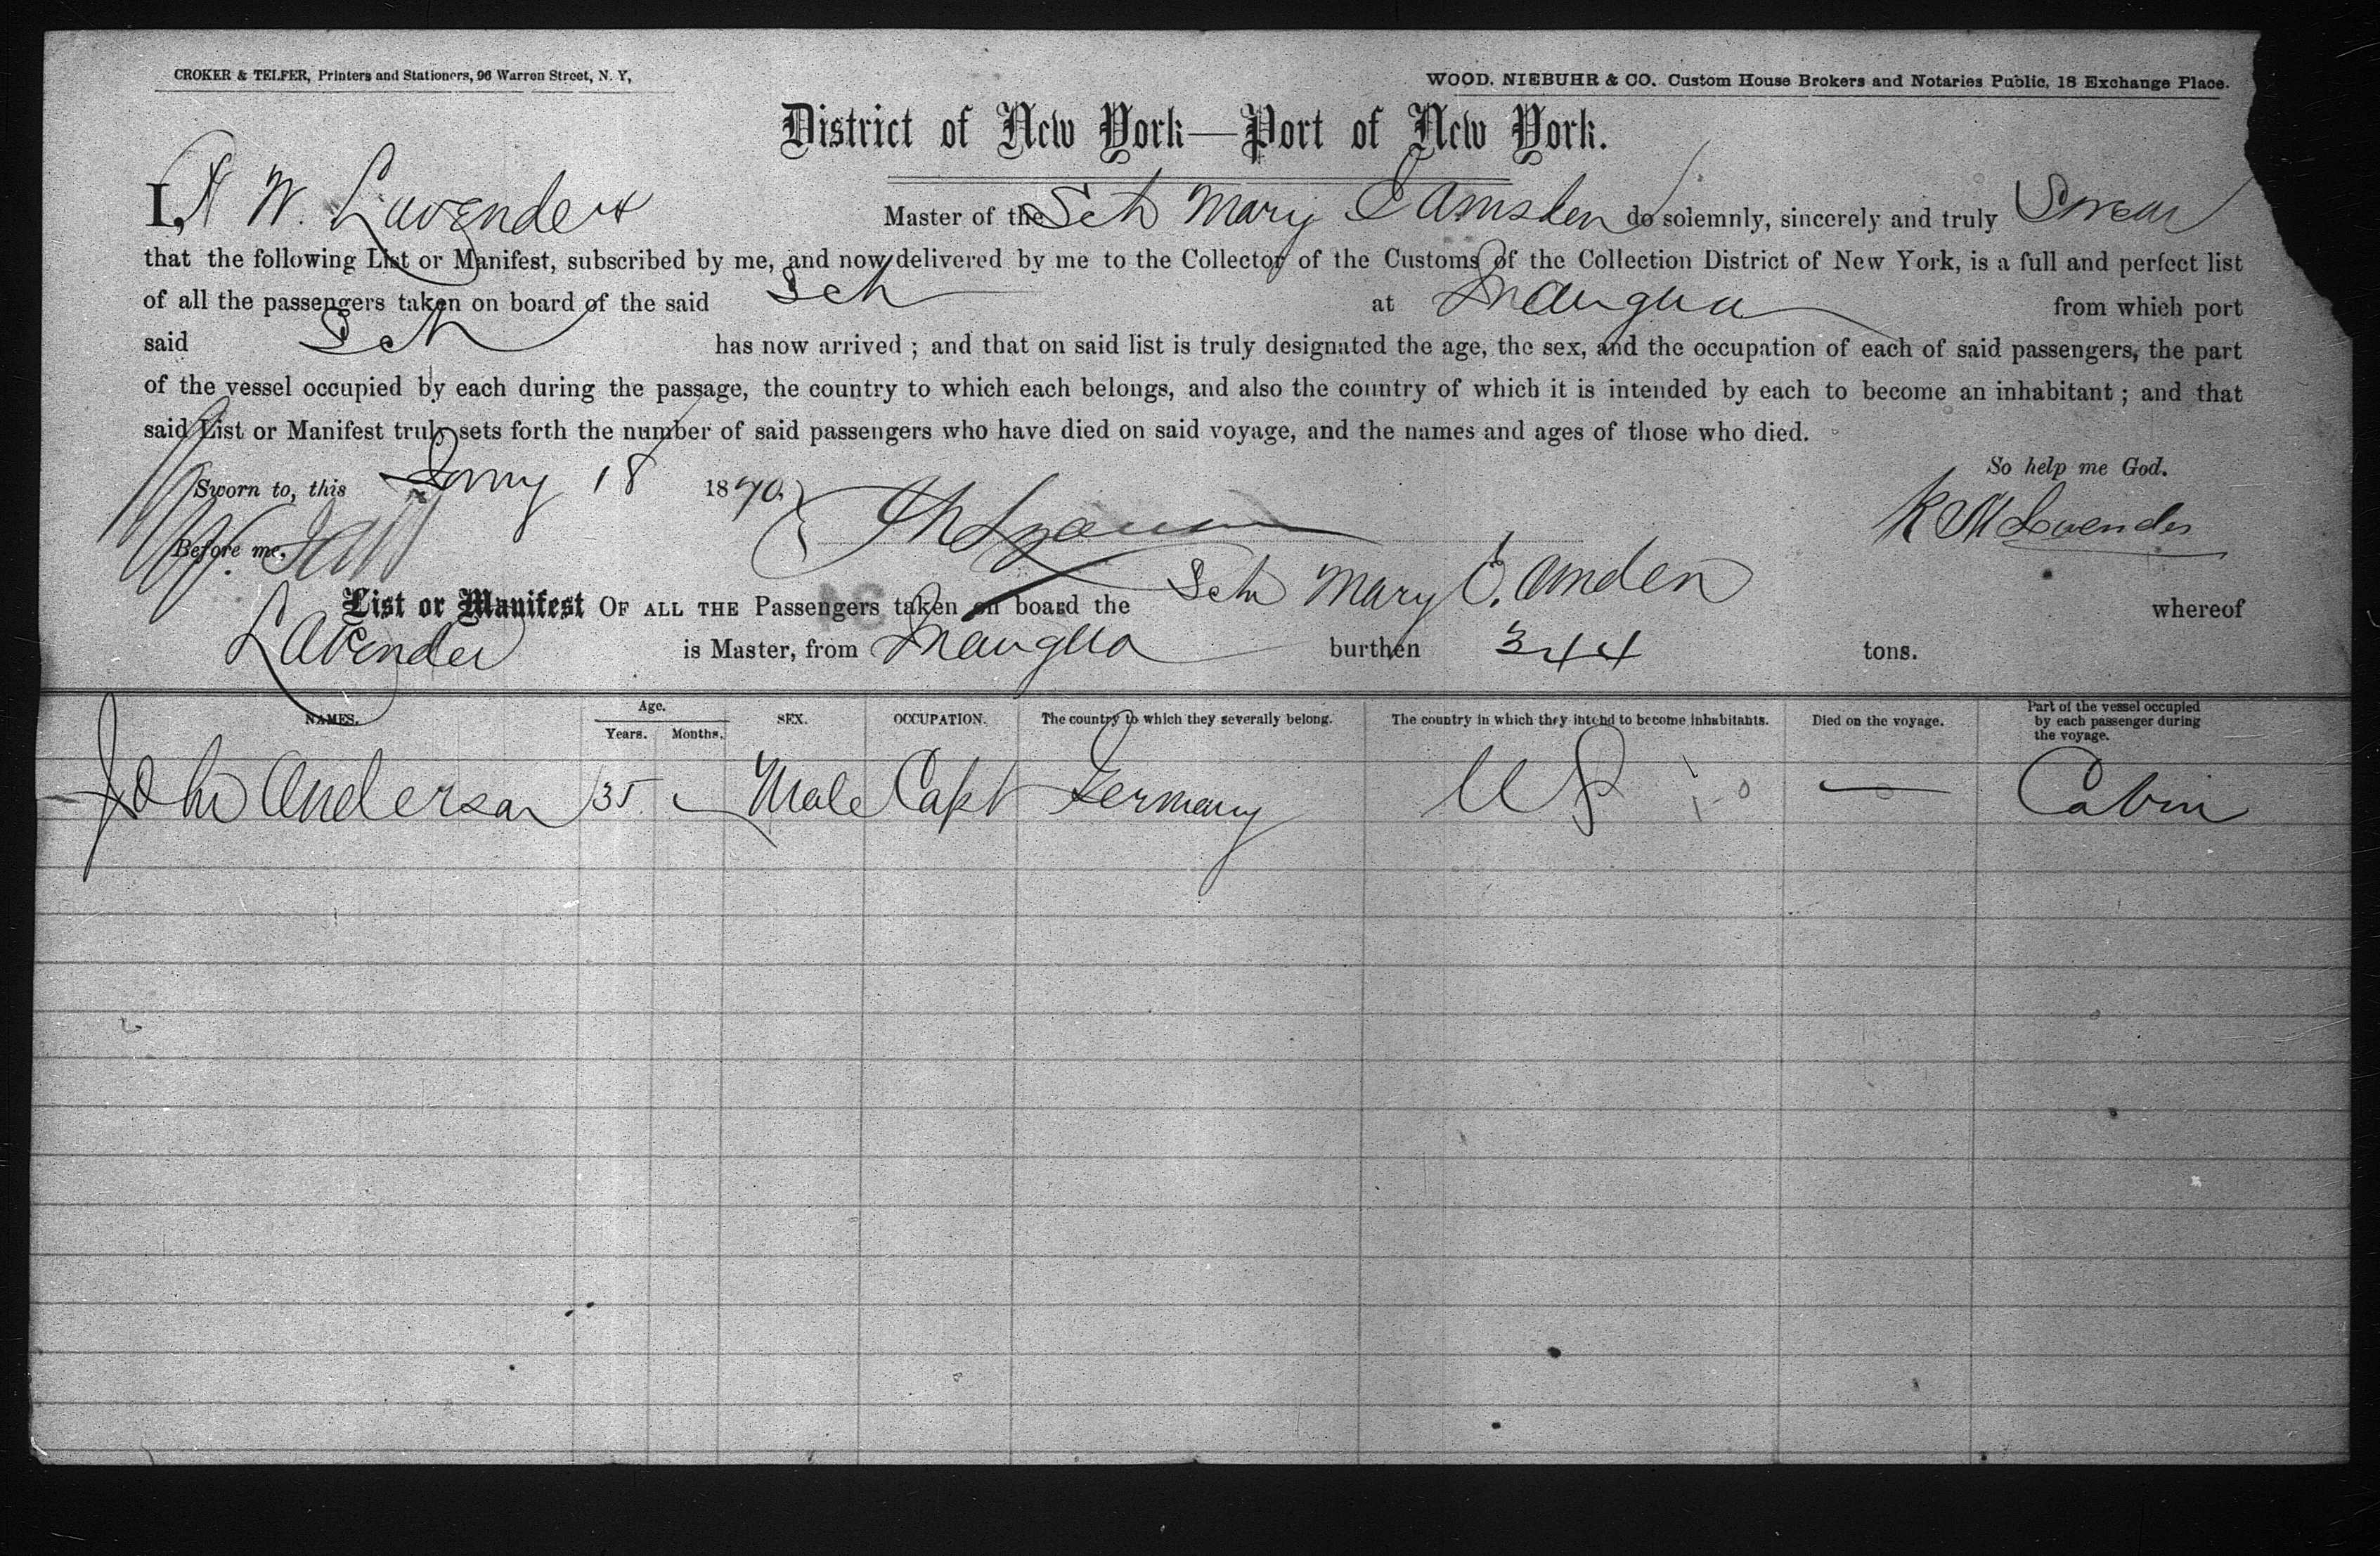 CROKER & TELFER, Printers and Stationers, 96 Warren Street, N. Y,
WOOD, NIEBUHR & CO. Custom House Brokers and Notaries Public, 18 Exchange Place.
District of New York—Port of New York.
I, W. Lavender Master of the Sch Mary E Amsden do solemnly, sincerely and truly Swear
that the following List or Manifest, subscribed by me, and now delivered by me to the Collector of the Customs of the Collection District of New York, is a full and perfect list
of all the passengers taken on board of the said Sch at from which port
said Sch has now arrived ; and that on said list is truly designated the age, the sex, and the occupation of each of said passengers, the part
of the vessel occupied by each during the passage, the country to which each belongs, and also the country of which it is intended by each to become an inhabitant ; and that
said List or Manifest truly sets forth the number of said passengers who have died on said voyage, and the names and ages of those who died.
So help me God.
Sworn to, this 18 1890
Lavender
Before me,
List or Manifest OF ALL THE Passengers taken on board the Sch Mary E. Amden whereof
Lavender is Master, from burthen 344 tons.
NAMES. Age. Years. Months. SEX. OCCUPATION. The country to which they severally belong. The country in which they intend to become inhabitants. Died on the voyage. Part of the vessel occupied by each passenger during the voyage.
John Anderson 35 Male Capt Germany US — Cabin